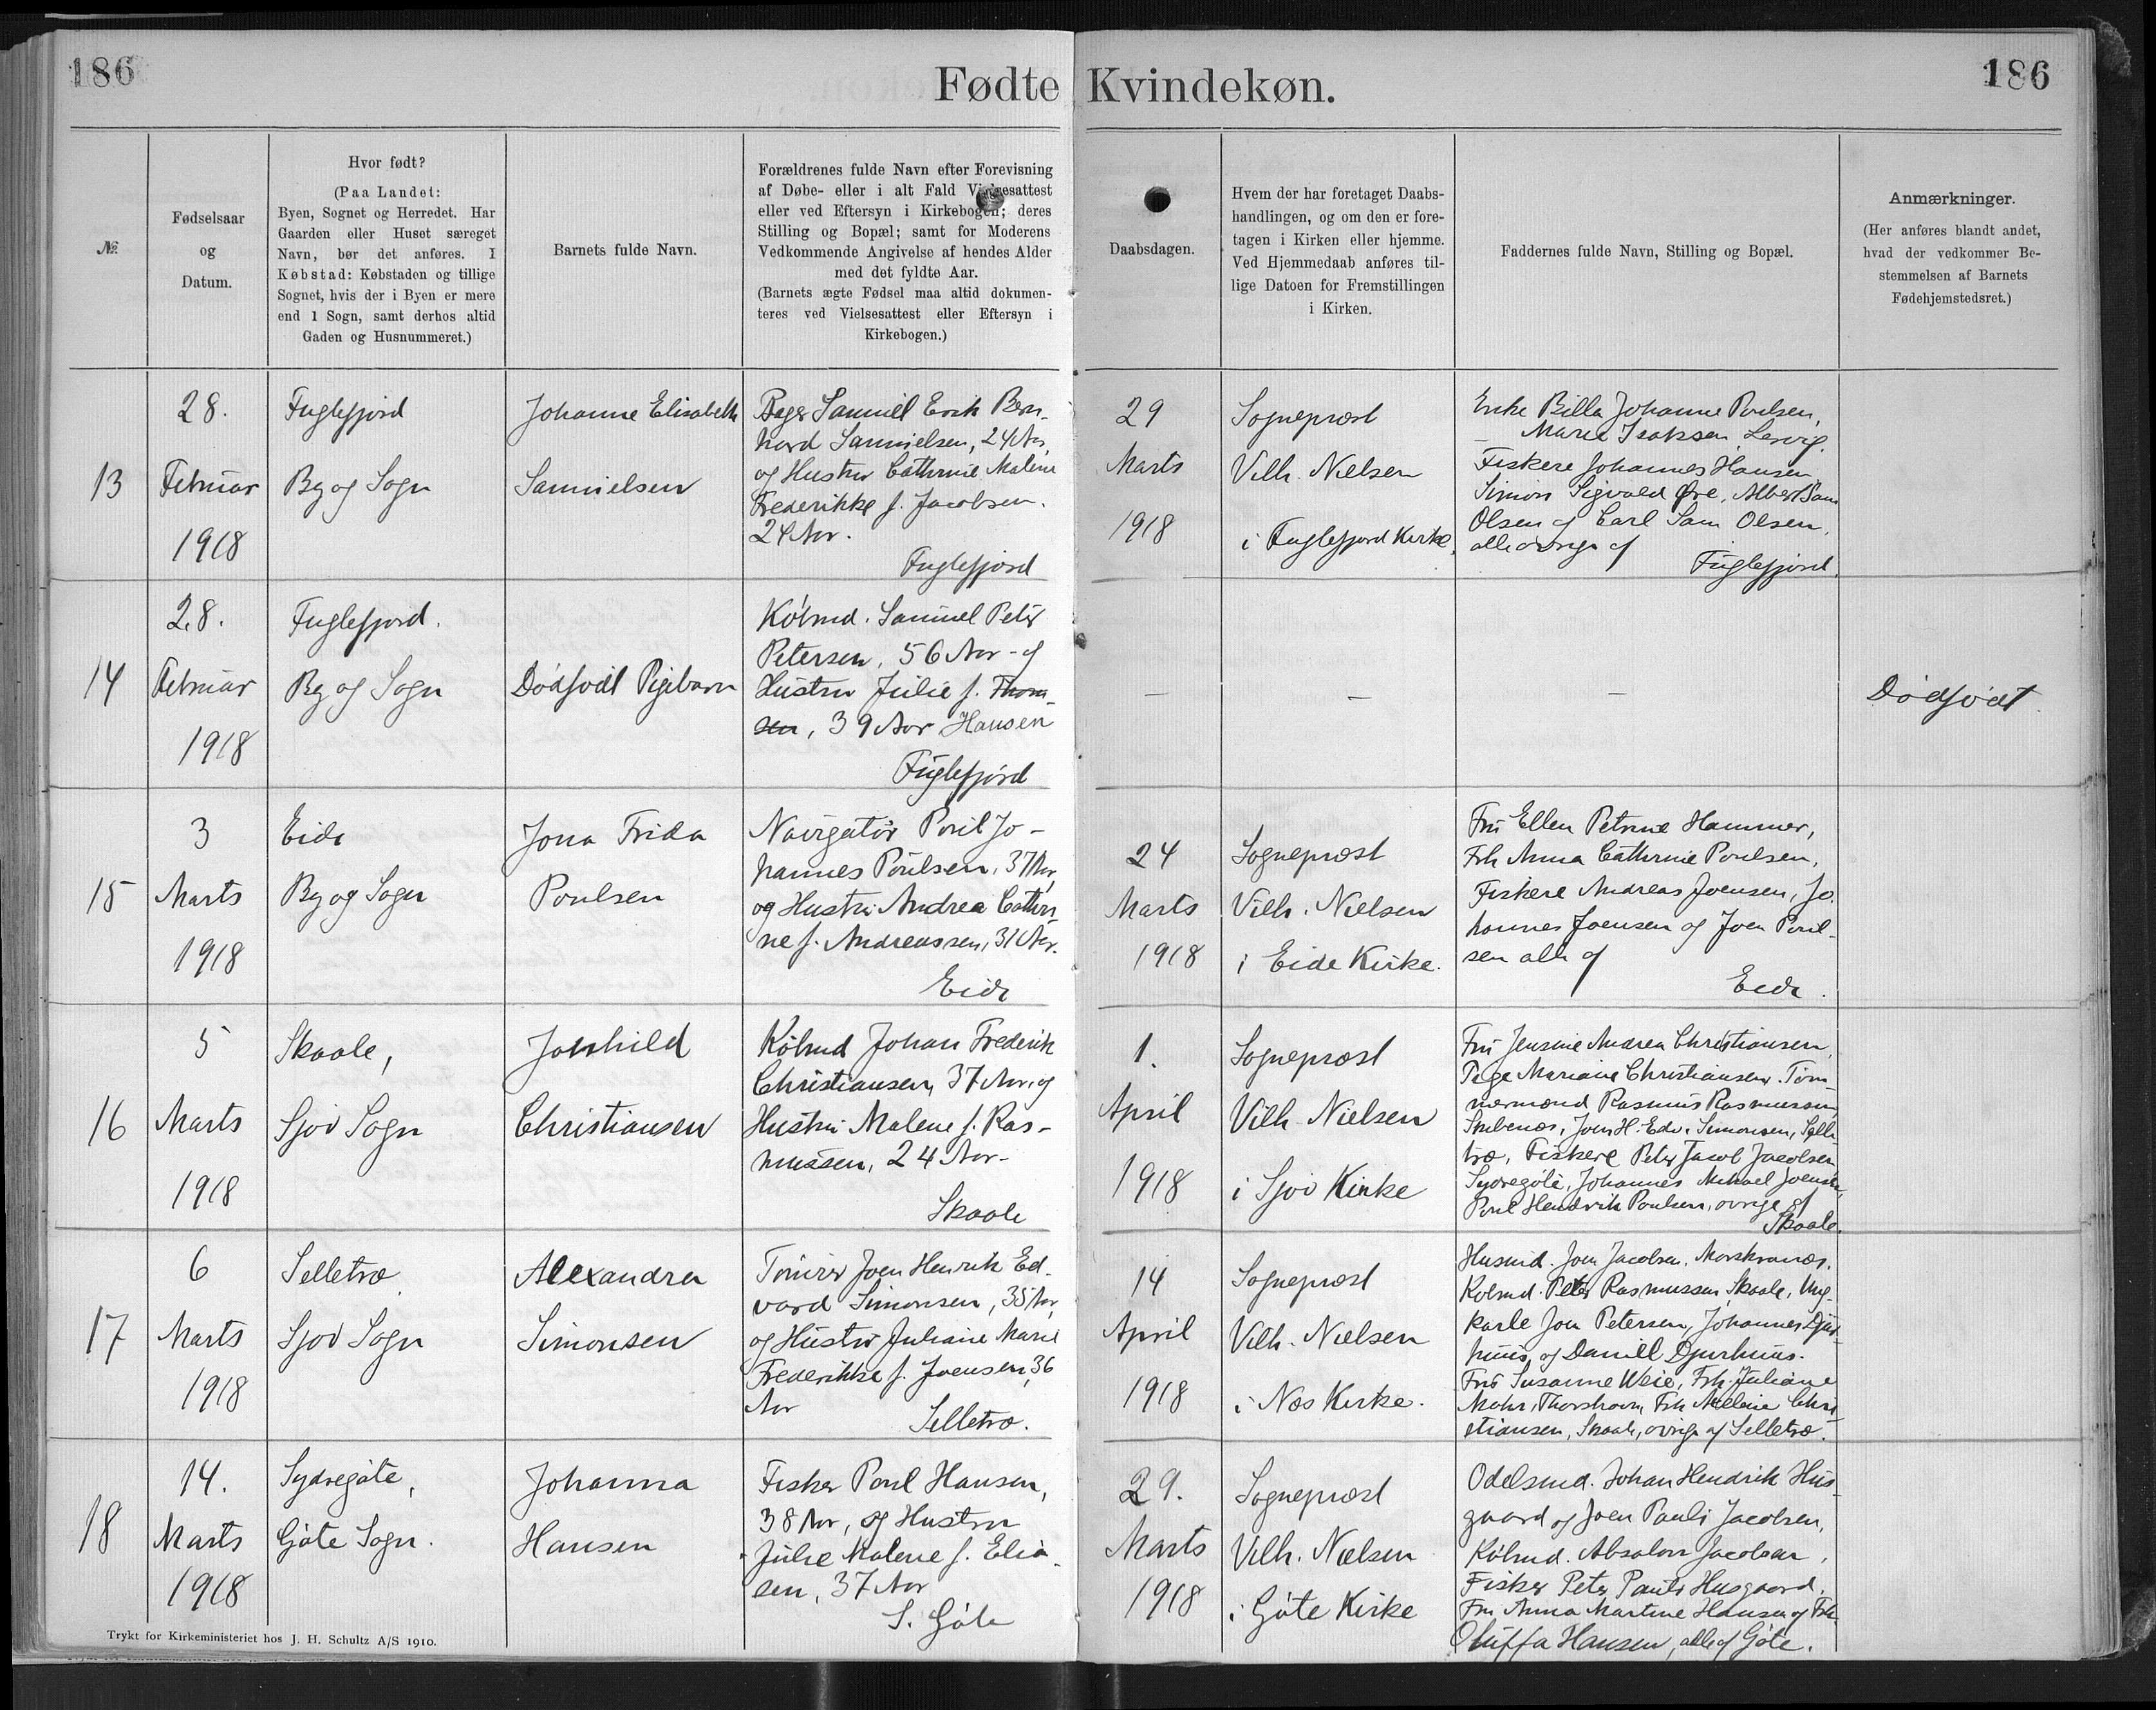 186
Fødte Kvindekøn.
186
№
Fødselsaar
og
Datum.
Hvor født?
(Paa Landet:
Byen, Sognet og Herredet. Har
Gaarden eller Huset særeget
Navn, bør det anføres. I
Købstad: Købstaden og tillige
Sognet, hvis der i Byen er mere
end 1 Sogn, samt derhos altid
Gaden og Husnummeret.)
Barnets fulde Navn.
Forældrenes fulde Navn efter Forevisning
af Døbe- eller i alt Fald Vielsesattest
eller ved Eftersyn i Kirkebogen; deres
Stilling og Bopæl; samt for Moderens
Vedkommende Angivelse af hendes Alder
med det fyldte Aar.
(Barnets ægte Fødsel maa altid dokumen-
teres ved Vielsesattest eller Eftersyn i
Kirkebogen.)
Daabsdagen.
Hvem der har foretaget Daabs-
handlingen, og om den er fore-
tagen i Kirken eller hjemme.
Ved Hjemmedaab anføres til-
lige Datoen for Fremstillingen
i Kirken.
Faddernes fulde Navn, Stilling og Bopæl.
Anmærkninger.
(Her anføres blandt andet,
hvad der vedkommer Be-
stemmelsen af Barnets
Fødehjemstedsret.)
13
28.
Februar
1918
Fuglefjord
By og Sogn
Johanne Elisabeth
Samuelsen
Bager Samuel Erik Bern-
hard Samuelsen, 24 Aar,
og Hustru Cathrine Malene
Frederikke f. Jacobsen.
24 Aar.
Fuglefjord
29
Marts
1918
Sognepræst
Vilh. Nielsen
i Fuglefjord Kirke.
Enke Billa Johanne Poulsen,
— Marie Isaksen, Lervig.
Fiskere Johannes Hansen,
Simon Sigvald Øre, Albert Sam
Olsen og Carl Sam Olsen,
alle øvrige af
Fuglefjord.
14
28.
Februar
1918
Fuglefjord.
By og Sogn
Dødfødt Pigebarn
Købmd. Samuel Peter
Petersen, 56 Aar - og
Hustru Julie f. Thom-
sen, 39 Aar Hansen
Fuglefjord
—
—
—
Dødfødt.
15
3
Marts
1918
Eide
By og Sogn
Jona Frida
Poulsen
Navigatør Poul Jo-
hannes Poulsen, 37 Aar,
og Hustru Andrea Cathri-
ne f. Andreassen, 31 Aar.
Eide
24
Marts
1918
Sognepræst
Vilh. Nielsen
i Eide Kirke.
Fru Ellen Petrine Hammer,
Frk Anna Cathrine Poulsen,
Fiskere Andreas Joensen, Jo-
hannes Joensen og Joen Poul-
sen alle af
Eide.
16
5
Marts
1918
Skaale,
Sjov Sogn
Christiansen
Købmd Johan Frederik
Christiansen, 37 Aar, og
Hustru Malene f. Ras-
mussen, 24 Aar-
Skaale
1.
April
1918
Sognepræst
Vilh. Nielsen
i Sjov Kirke
Fru Jensine Andrea Christiansen,
Pige Mariane Christiansen. Tøm-
mermand Rasmus Rasmussen,
Joen H. Edv. Simonsen, Selle-
træ, Fiskere Peter Jacob Jacobsen
Sydregöte, Johannes Mikael Joensen,
Poul Hendrik Poulsen, øvrige af
Skaale.
17
6
Marts
1918
Selletræ
Sjov Sogn
Alexandra
Simonsen
Tømrer Joen Henrik Ed-
vard Simonsen, 35 Aar,
og Hustru Juliane Marie
Frederikke f. Joensen, 36
Aar
Selletræ.
14
April
1918
Sognepræst
Vilh. Nielsen
i Næs Kirke.
Husmd. Joen Jacobsen, Morskranæs,
Købmd. Peter Rasmussen Skaale, Ung-
karle Jon Petersen, Johannes Djur-
huus, og Daniell Djurhuus.
Fru Susanne Weie, Frk. Juliane
Mohr, Thorshavn, Frk Chri-
stiansen, Skaale, øvrige af Selletræ.
18
14.
Marts
1918
Sydregöte,
Göte Sogn.
Johanna
Hansen
Fisker Poul Hansen,
38 Aar, og Hustru
Julie Malene f. Elia-
sen, 37 Aar
S. Göte
29.
Marts
1918
Sognepræst
Vilh. Nielsen
i Göte Kirke
Odelsmd. Johan Hendrik Hus-
gaard og Joen Pauli Jacobsen,
Købmd. Absalon Jacobsen,
Fisker Peter Pauli Husgaard.
Fru Anna Martine Hansen og Frk
Oluffa Hansen, alle af Göte.
Trykt for Kirkeministeriet hos J. H. Schultz A/S 1910.